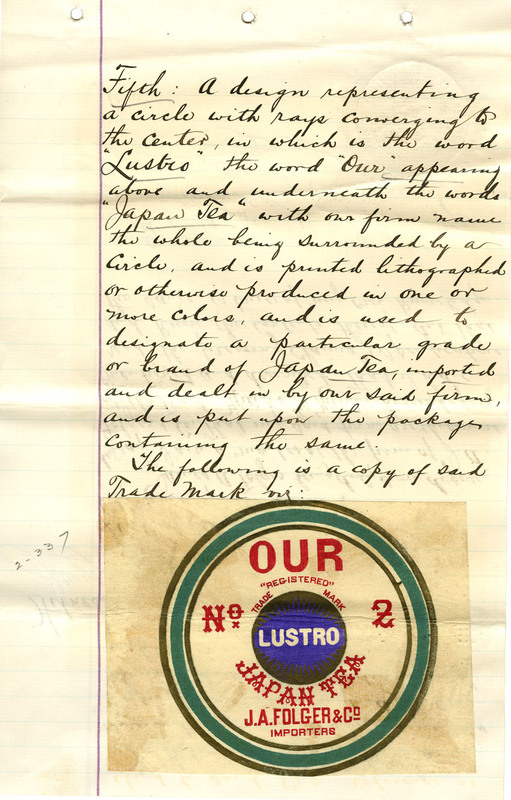 Fifth: A design representing
a circle with rays converging to
the center, in which is the word
"Lustro" the word "Our" appearing
above and underneath the words
"Japan Tea" with our firm name
the whole being surrounded by a
Circle, and is printed lithographed
or otherwise produced in one or
more colors, and is used to
designate a particular grade
or brand of Japan Tea, imported
and dealt in by our said firm,
and is put upon the packages
containing the same.
The following is a copy of said
Trade Mark viz:
2-337
OUR
"REGISTERED"
TRADE MARK
No 2
LUSTRO
JAPAN TEA
J.A. FOLGER & Co
IMPORTERS